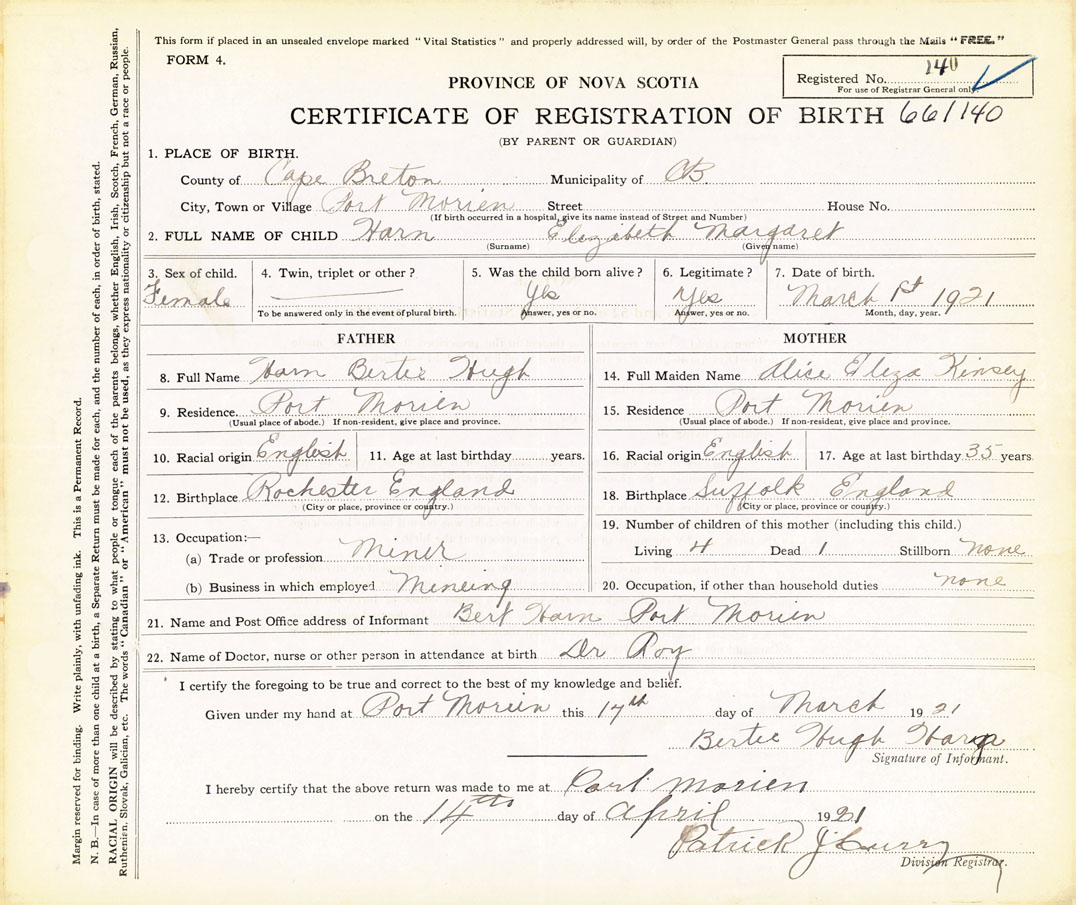 This form if placed in an unsealed envelope marked "Vital Statistics" and properly addressed will, by order of the Postmaster General pass through the Mails "FREE."
FORM 4.
Registered No. 140
For use of Registrar General only.
PROVINCE OF NOVA SCOTIA
CERTIFICATE OF REGISTRATION OF BIRTH 661140
(BY PARENT OR GUARDIAN)
1. PLACE OF BIRTH.
County of Cape Breton Municipality of CB.
City, Town or Village Port Morien Street House No.
(If birth occurred in a hospital, give its name instead of Street and Number)
2. FULL NAME OF CHILD Harn Elizabeth Margaret
(Surname) (Given name)
3. Sex of child. 4. Twin, triplet or other? 5. Was the child born alive? 6. Legitimate? 7. Date of birth.
Female Yes Yes March 1st 1921
To be answered only in the event of plural birth. Answer, yes or no. Answer, yes or no. Month, day, year.
FATHER
8. Full Name Harn Bertie Hugh
9. Residence. Port Morien
(Usual place of abode.) If non-resident, give place and province.
10. Racial origin English 11. Age at last birthday years.
12. Birthplace Rochester England
(City or place, province or country.)
13. Occupation:—
(a) Trade or profession Miner
(b) Business in which employed Mineing
MOTHER
14. Full Maiden Name Alice Eliza Kinsey
15. Residence Port Morien
(Usual place of abode.) If non-resident, give place and province.
16. Racial origin English 17. Age at last birthday 35 years
18. Birthplace Suffolk England
(City or place, province or country.)
19. Number of children of this mother (including this child.)
Living 4 Dead 1 Stillborn none
20. Occupation, if other than household duties none
21. Name and Post Office address of Informant Bert Harn Port Morien
22. Name of Doctor, nurse or other person in attendance at birth Dr Roy
I certify the foregoing to be true and correct to the best of my knowledge and belief.
Given under my hand at Port Morien this 17th day of March 1921
Bertie Hugh Harn
Signature of Informant.
I hereby certify that the above return was made to me at Port Morien
on the 14th day of April 1921
Patrick J Curry
Division Registrar.
Margin reserved for binding. Write plainly, with unfading ink. This is a Permanent Record.
N. B.—In case of more than one child at a birth, a Separate Return must be made for each, and the number of each, in order of birth, stated.
RACIAL ORIGIN will be described by stating to what people or tongue each of the parents belongs, whether English, Irish, Scotch, French, German, Russian,
Ruthenian, Slovak, Galician, etc. The words "Canadian" or "American" must not be used, as they express nationality or citizenship but not a race or people.